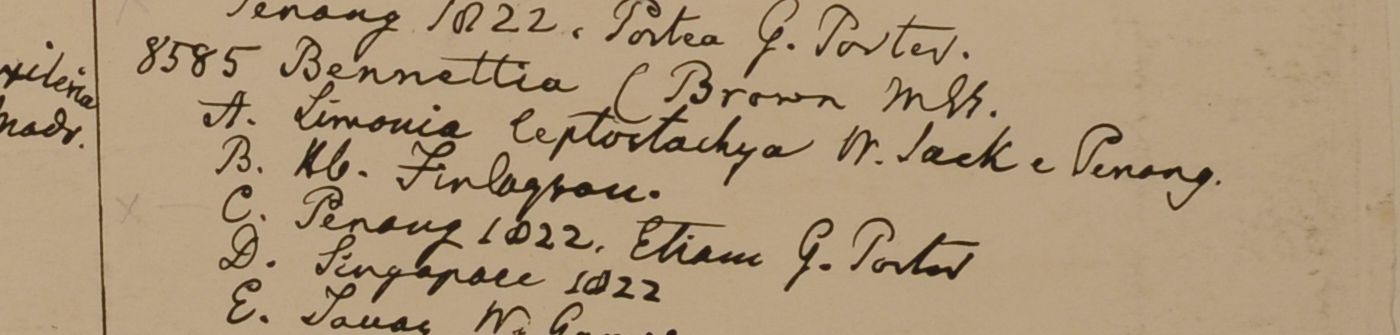 Penang 1822. Postea G. Porter.
8585 Bennettia (Brown Mss.
A. Limonia leptostachya W. Jack e Penang.
B. Hb. Finlayson.
C. Penang 1822. Etiam G. Porter
D. Singapore 1822
E. Tavoy W. Gomez
madr.